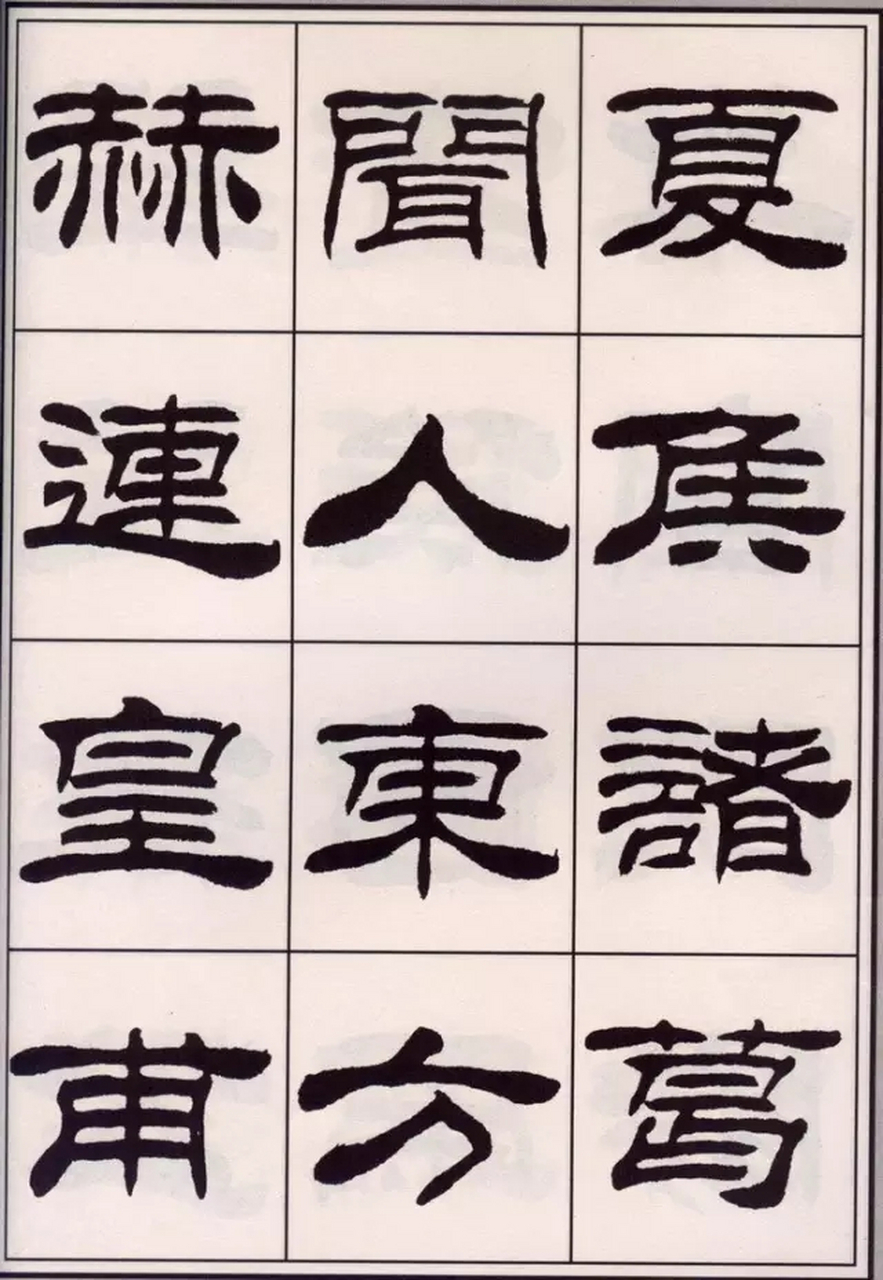 夏侯諸葛
聞人東方
赫連皇甫